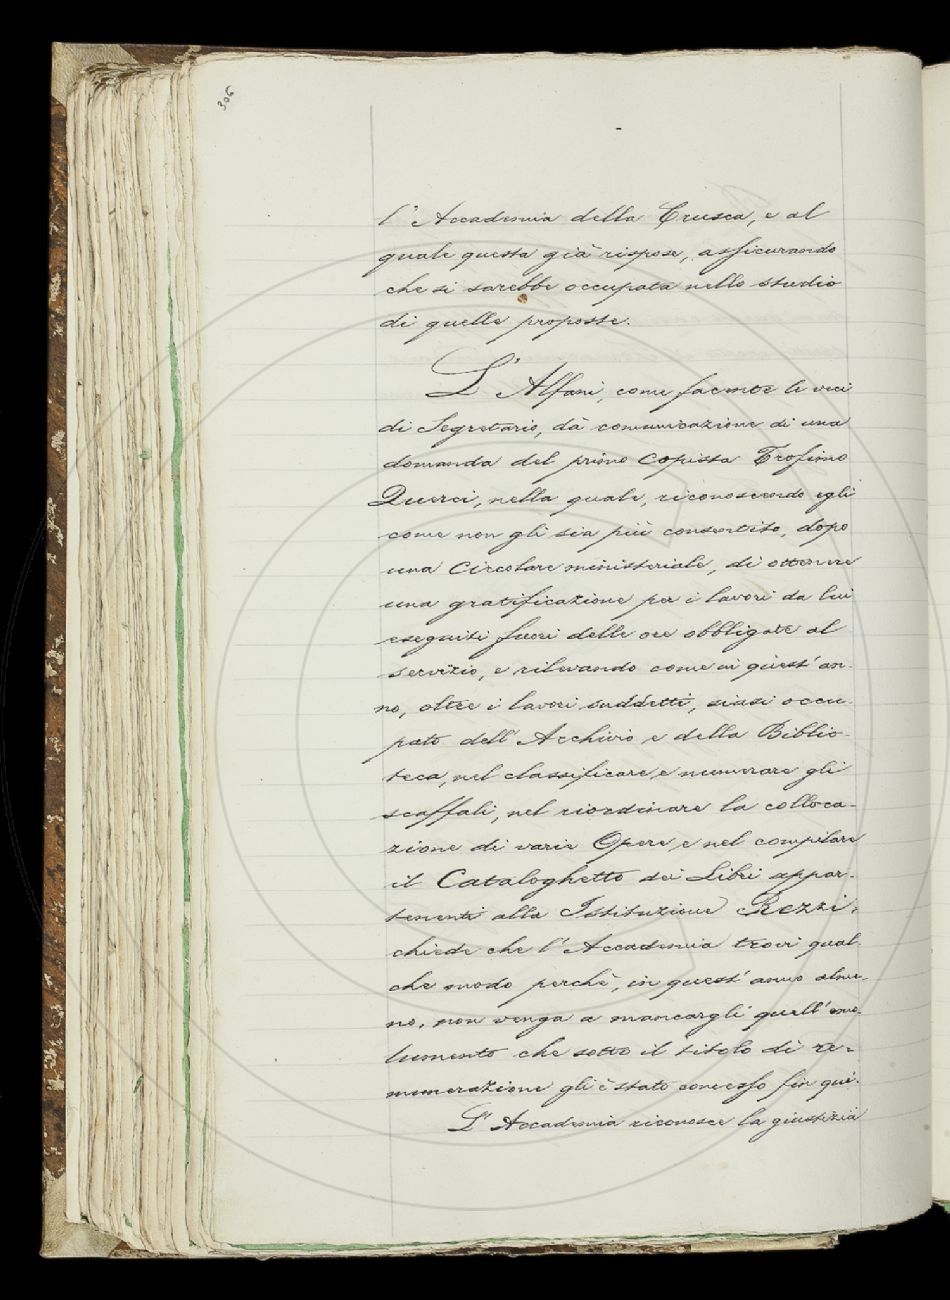 306
l'Accademia della Crusca, e al
quale questa già rispose, assicurando
che si sarebbe occupata nello studio
di quelle proposte.
L'Alfani, come facente le veci
di Segretario, dà comunicazione di una
domanda del primo Copista Trofimo
Querci, nella quale, riconoscendo egli
come non gli sia più consentito, dopo
una Circolare ministeriale, di ottenere
una gratificazione per i lavori da lui
eseguiti fuori delle ore obbligate al
servizio, e rilevando come in quest'an-
no, oltre i lavori suddetti, siasi occu-
pato dell'Archivio e della Biblio-
teca, nel classificare e numerare gli
scaffali, nel riordinare la colloca-
zione di varie Opere, e nel compilare
il Cataloghetto dei Libri appar-
tenenti alla Istituzione Rezzi,
chiede che l'Accademia trovi qual-
che modo perchè, in quest'anno alme-
no, non venga a mancargli quell'emo-
lumento che sotto il titolo di re-
munerazione gli è stato concesso fin qui.
L'Accademia riconosce la giustizia